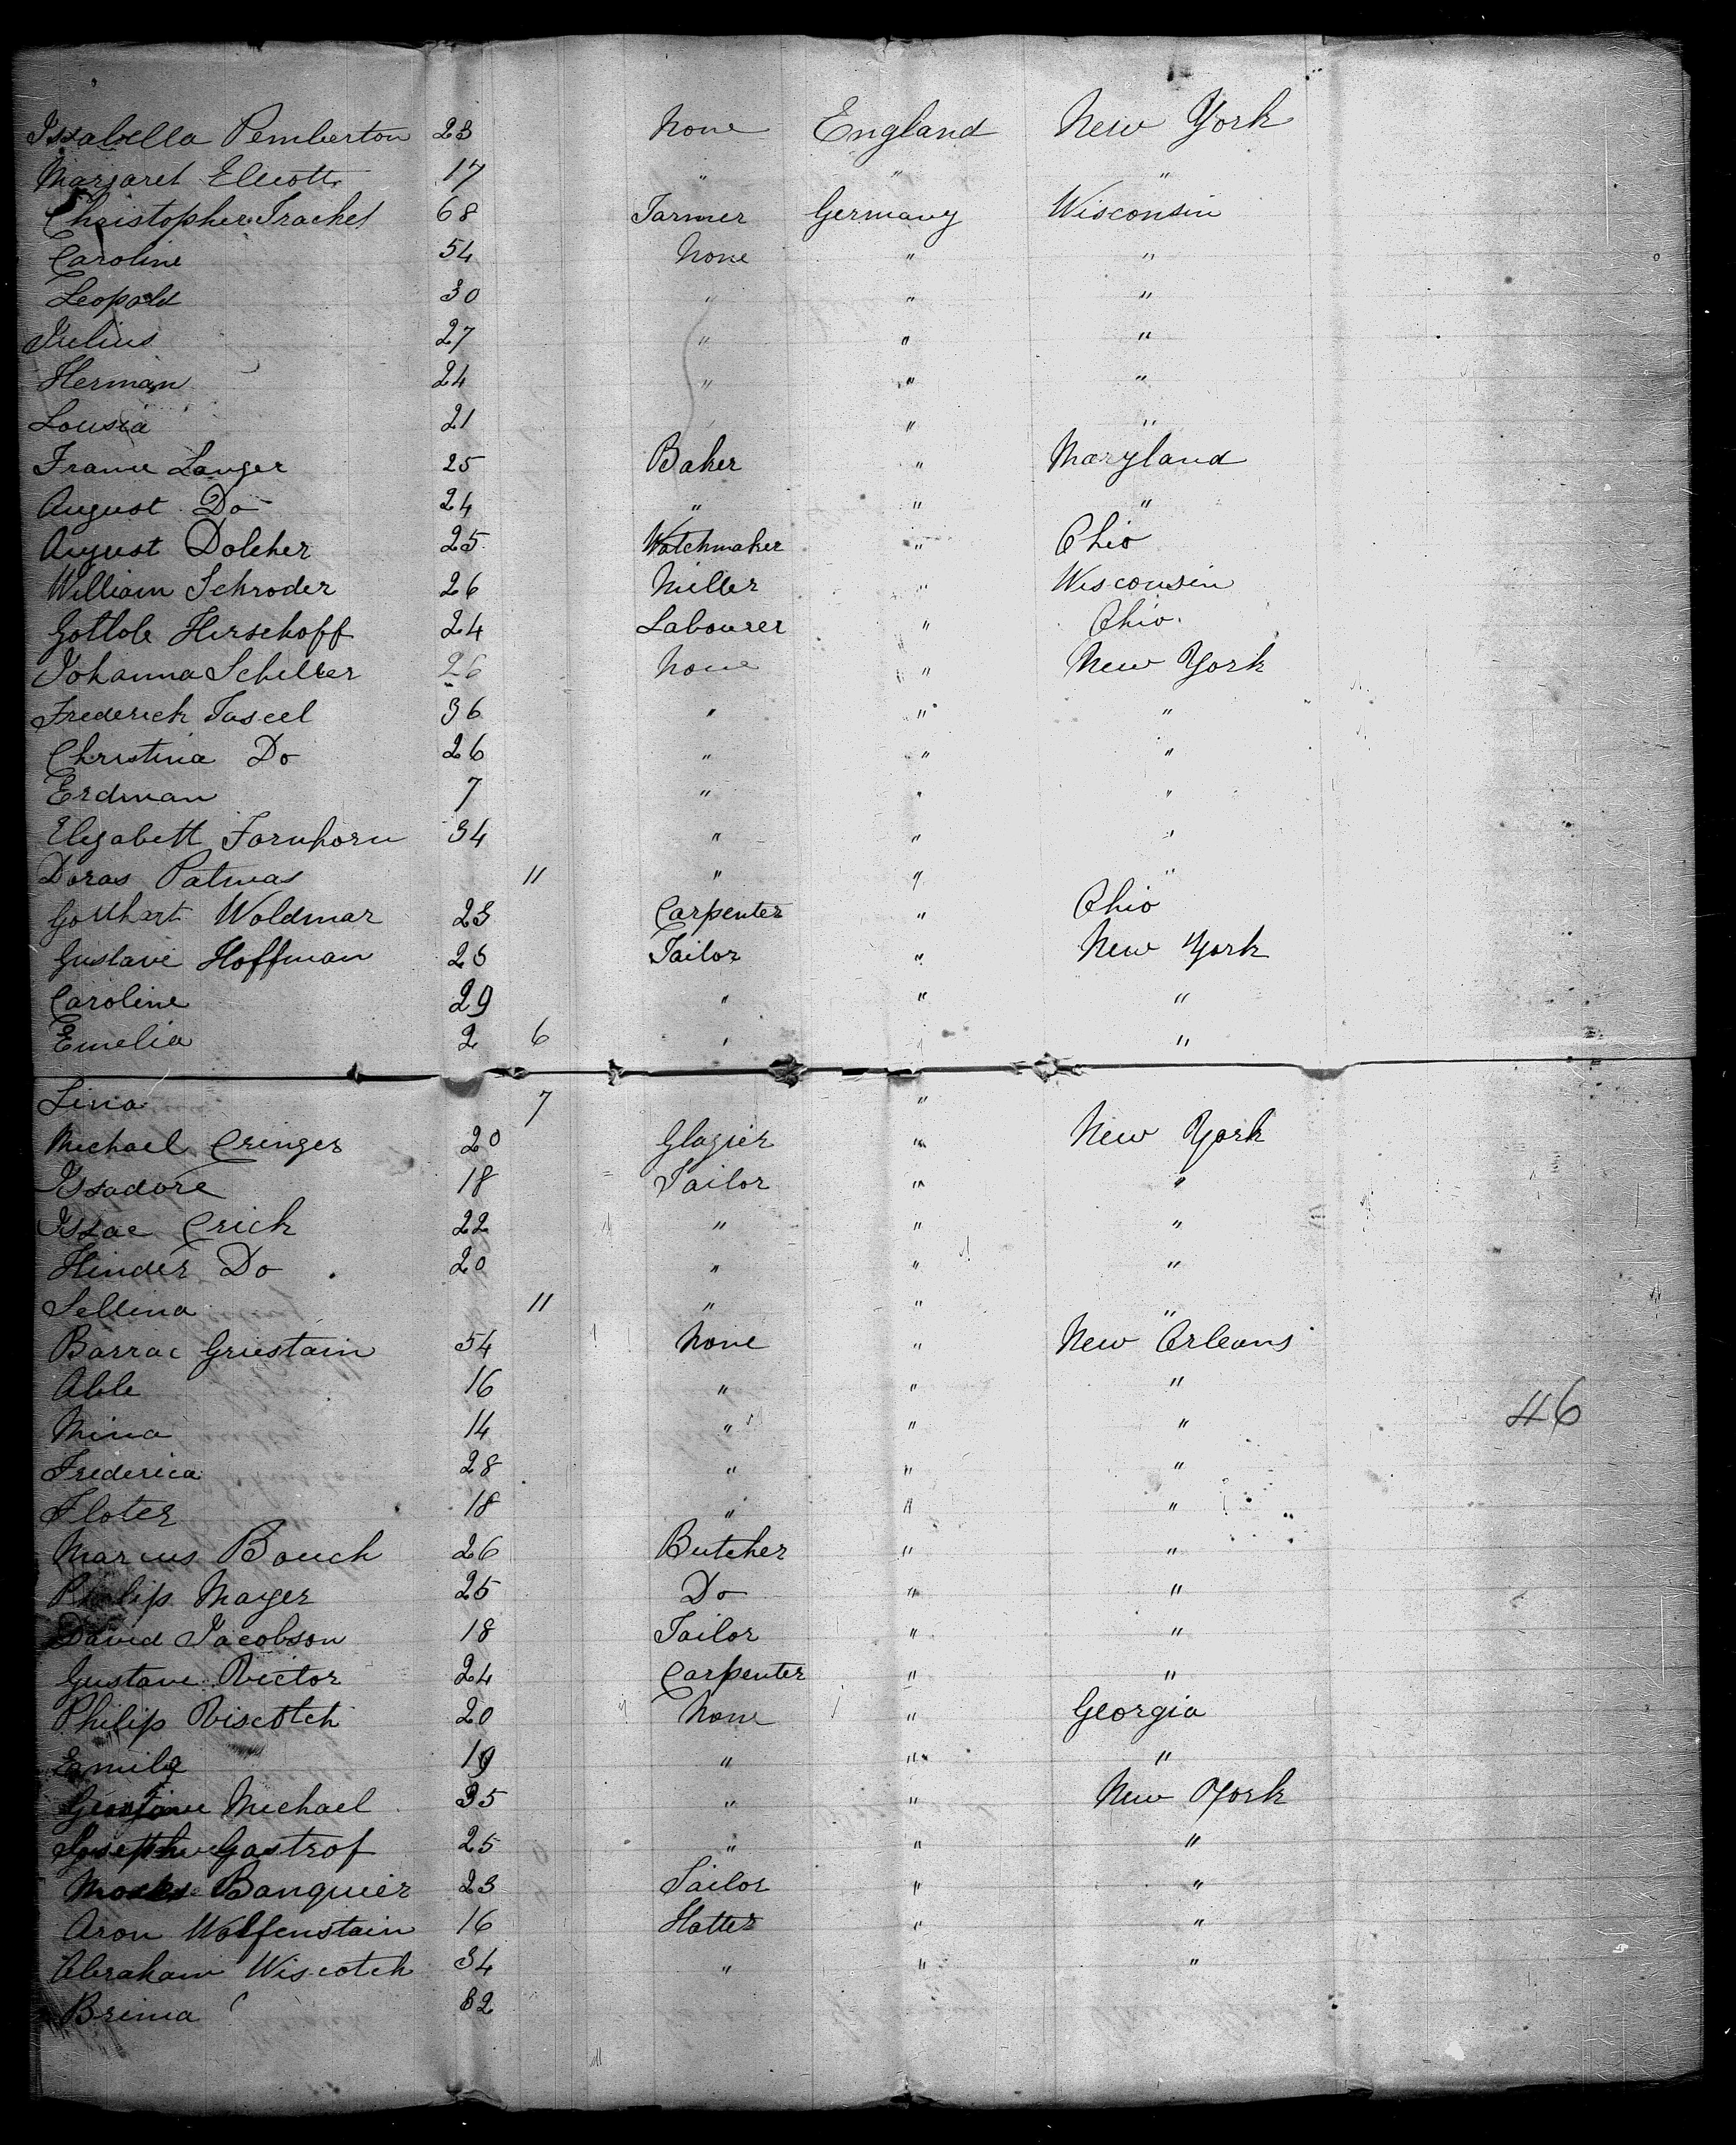 Issabella Pemberton 23 None England New York
Margaret Elliott 17 " " "
Christopher Trachel 68 Farmer Germany Wisconsin
Caroline 54 None " "
Leopold 30 " " "
Julius 27 " " "
Herman 24 " " "
Lousia 21 " "
Langer 25 Baker " Maryland
August Do 24 " " "
August Dolcher 25 Watchmaker " Ohio
William Schroder 26 Miller " Wisconsin
Gotlob Hirschoff 24 Labourer " Ohio
Johanna Schiller 26 None " New York
Frederick Tascel 36 " " "
Christina Do 26 " " "
Erdman 7 " " "
Elizabett Farnhorn 34 " " "
Doras Patmas 11 " " "
Gotthart Woldmar 23 Carpenter " Ohio
Gustave Hoffman 25 Tailor " New York
Caroline 29 " " "
Emelia 2 6 " "
Lina 7 "
Michael Cringer 20 Glazier " New York
Issadore 18 Tailor " "
Issac Crich 22 " " "
Hinder Do 20 " " "
Sellina 11 " " "
Barrac Griestain 54 None " New Orleans
Able 16 " " "
Mina 14 " " "
46
Frederica 28 " " "
Floter 18 " " "
Marcus Bouch 26 Butcher " "
Philip Mayer 25 Do " "
David Jacobson 18 Tailor " "
Gustave Rictor 24 Carpenter " "
Philip Riscotch 20 None " Georgia
Emile 19 " " "
Michael 35 " " New York
Gastrof 25 " " "
Moses Banquier 23 Tailor " "
Aron Wolfenstain 16 Hatter " "
Abraham Wiscotch 34 " " "
Brima 32